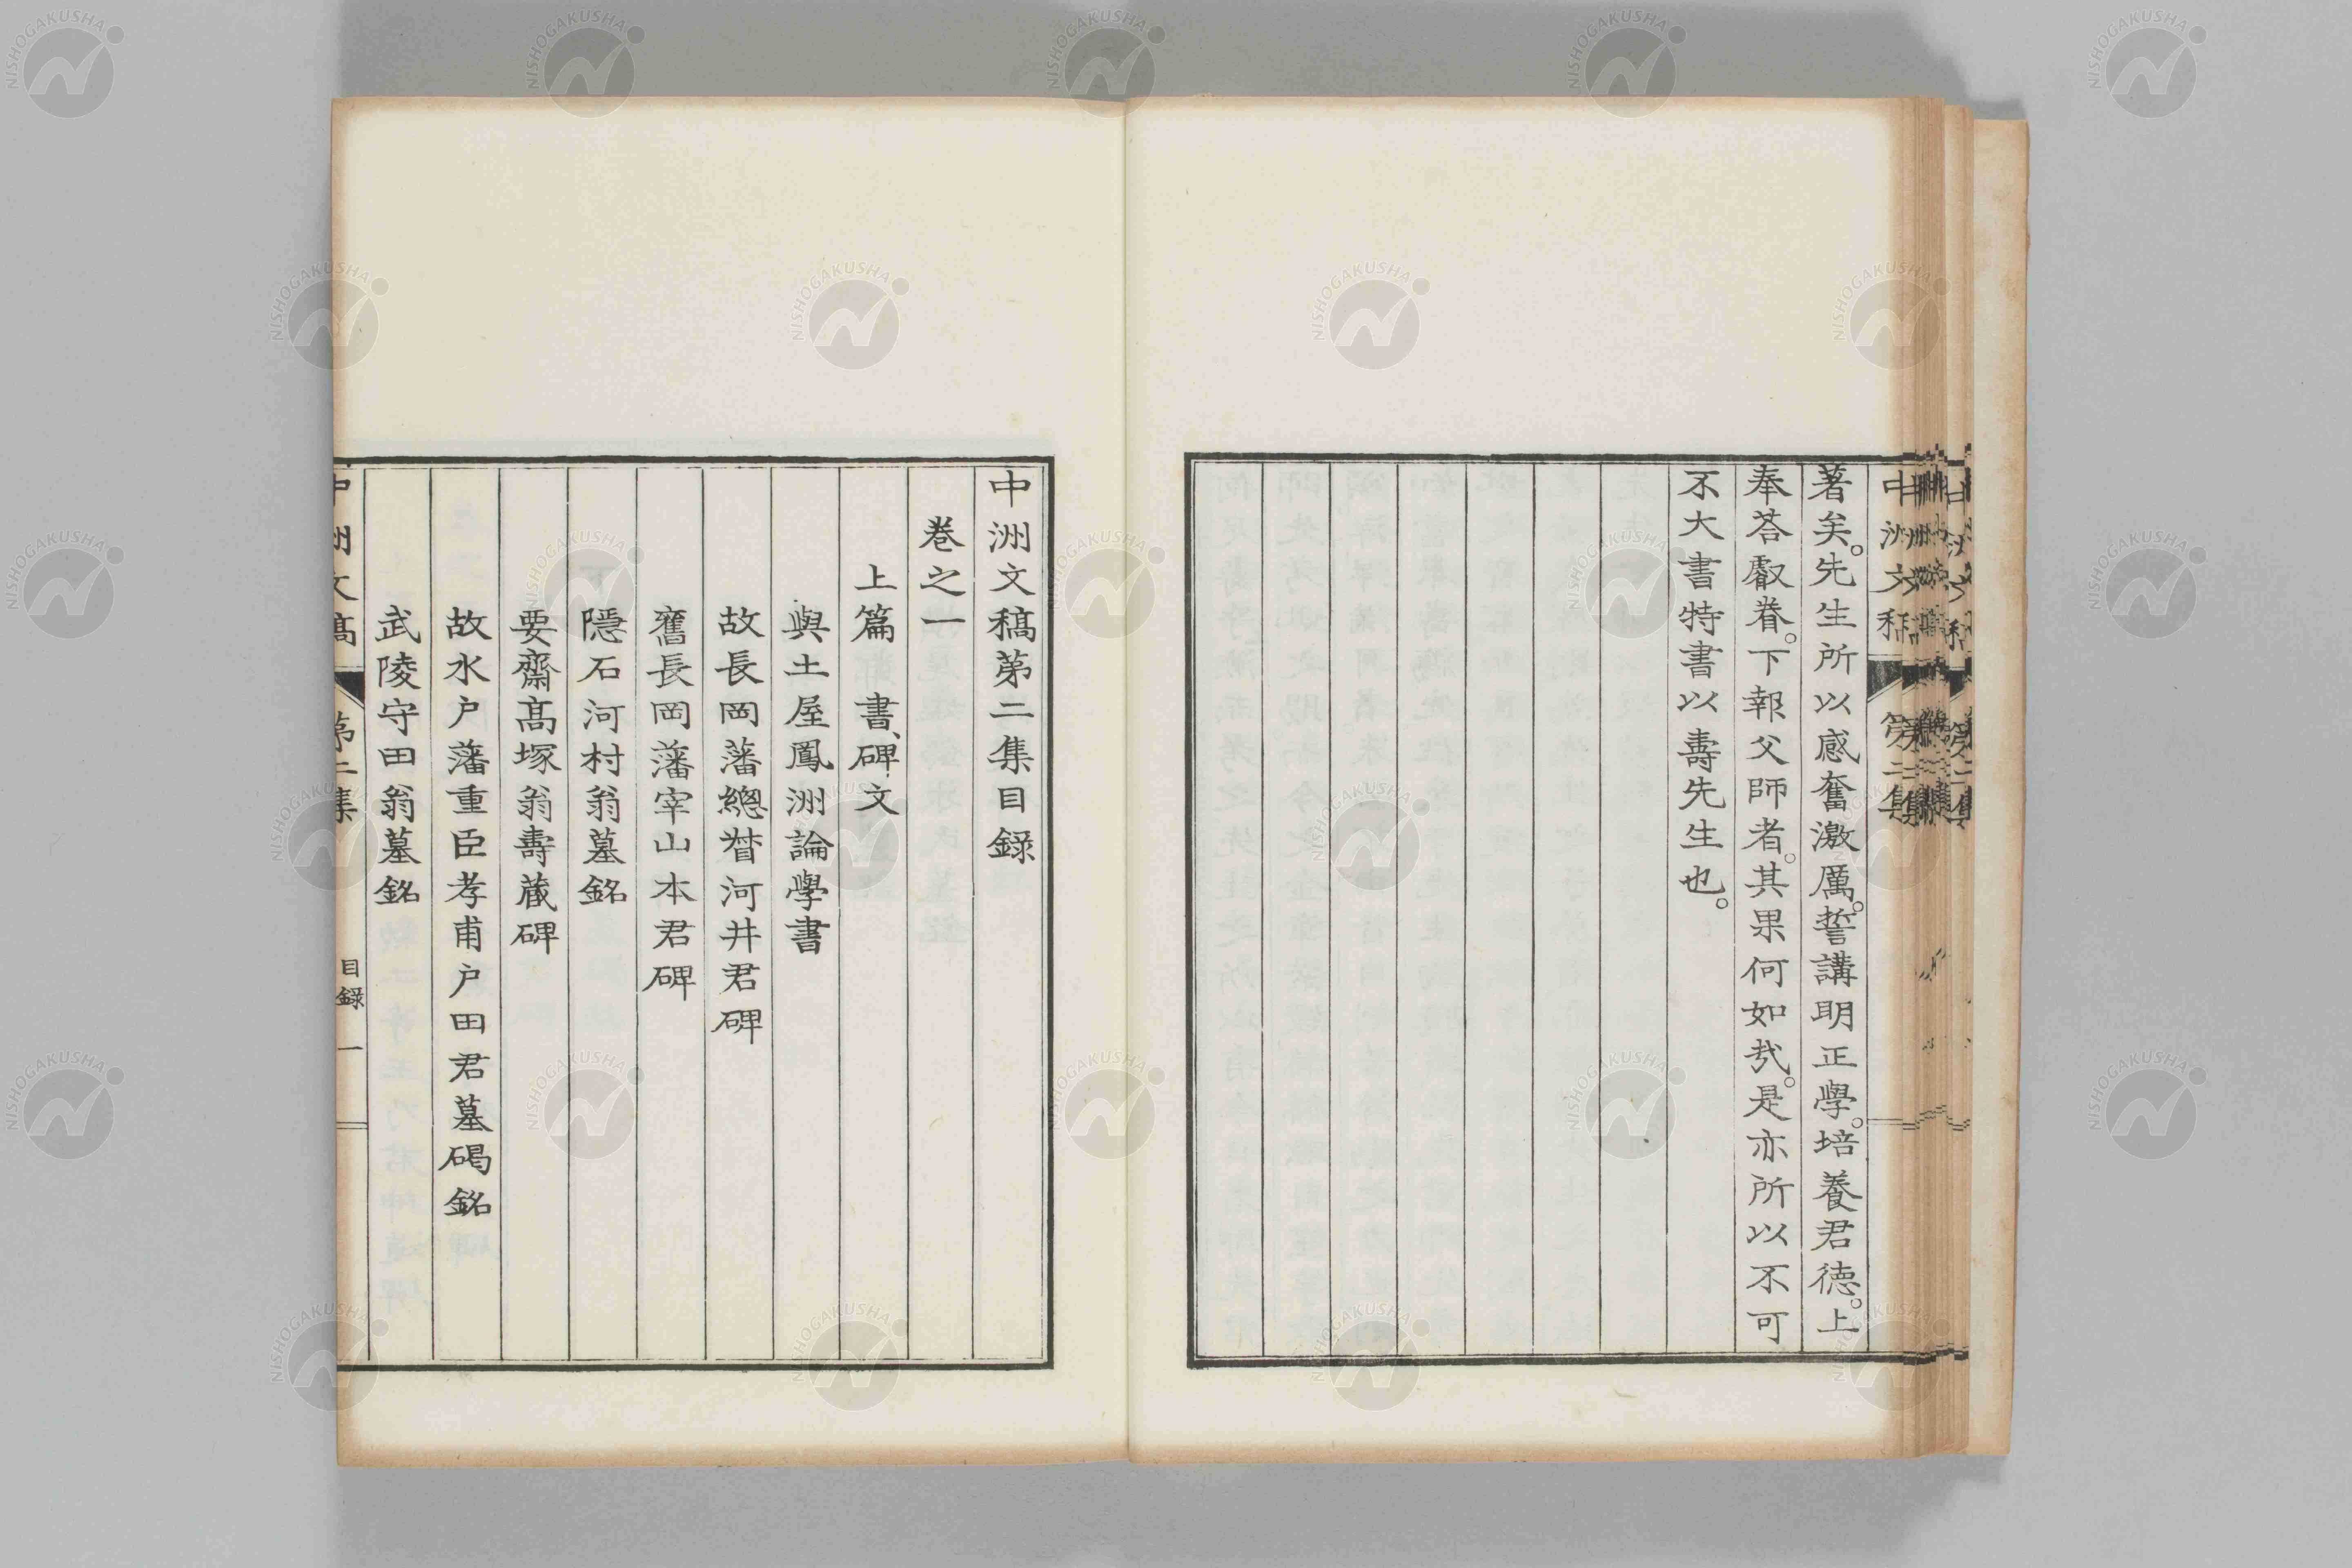 著矣。先生所以感奮激厲。誓講明正學。培養君德。上
奉荅叡眷。下報父師者。其果何如㢤。是亦所以不可
不大書特書以壽先生也。
中洲文稿第二集目録
卷之一
上篇 書、碑文
與土屋鳳洲論學書
故長岡藩總督河井君碑
舊長岡藩宰山本君碑
隱石河村翁墓銘
要齋髙塚翁壽藏碑
故水户藩重臣孝甫户田君墓碣銘
武陵守田翁墓銘
中洲文稿 第二集 目録 一
NISHOGAKUSHA